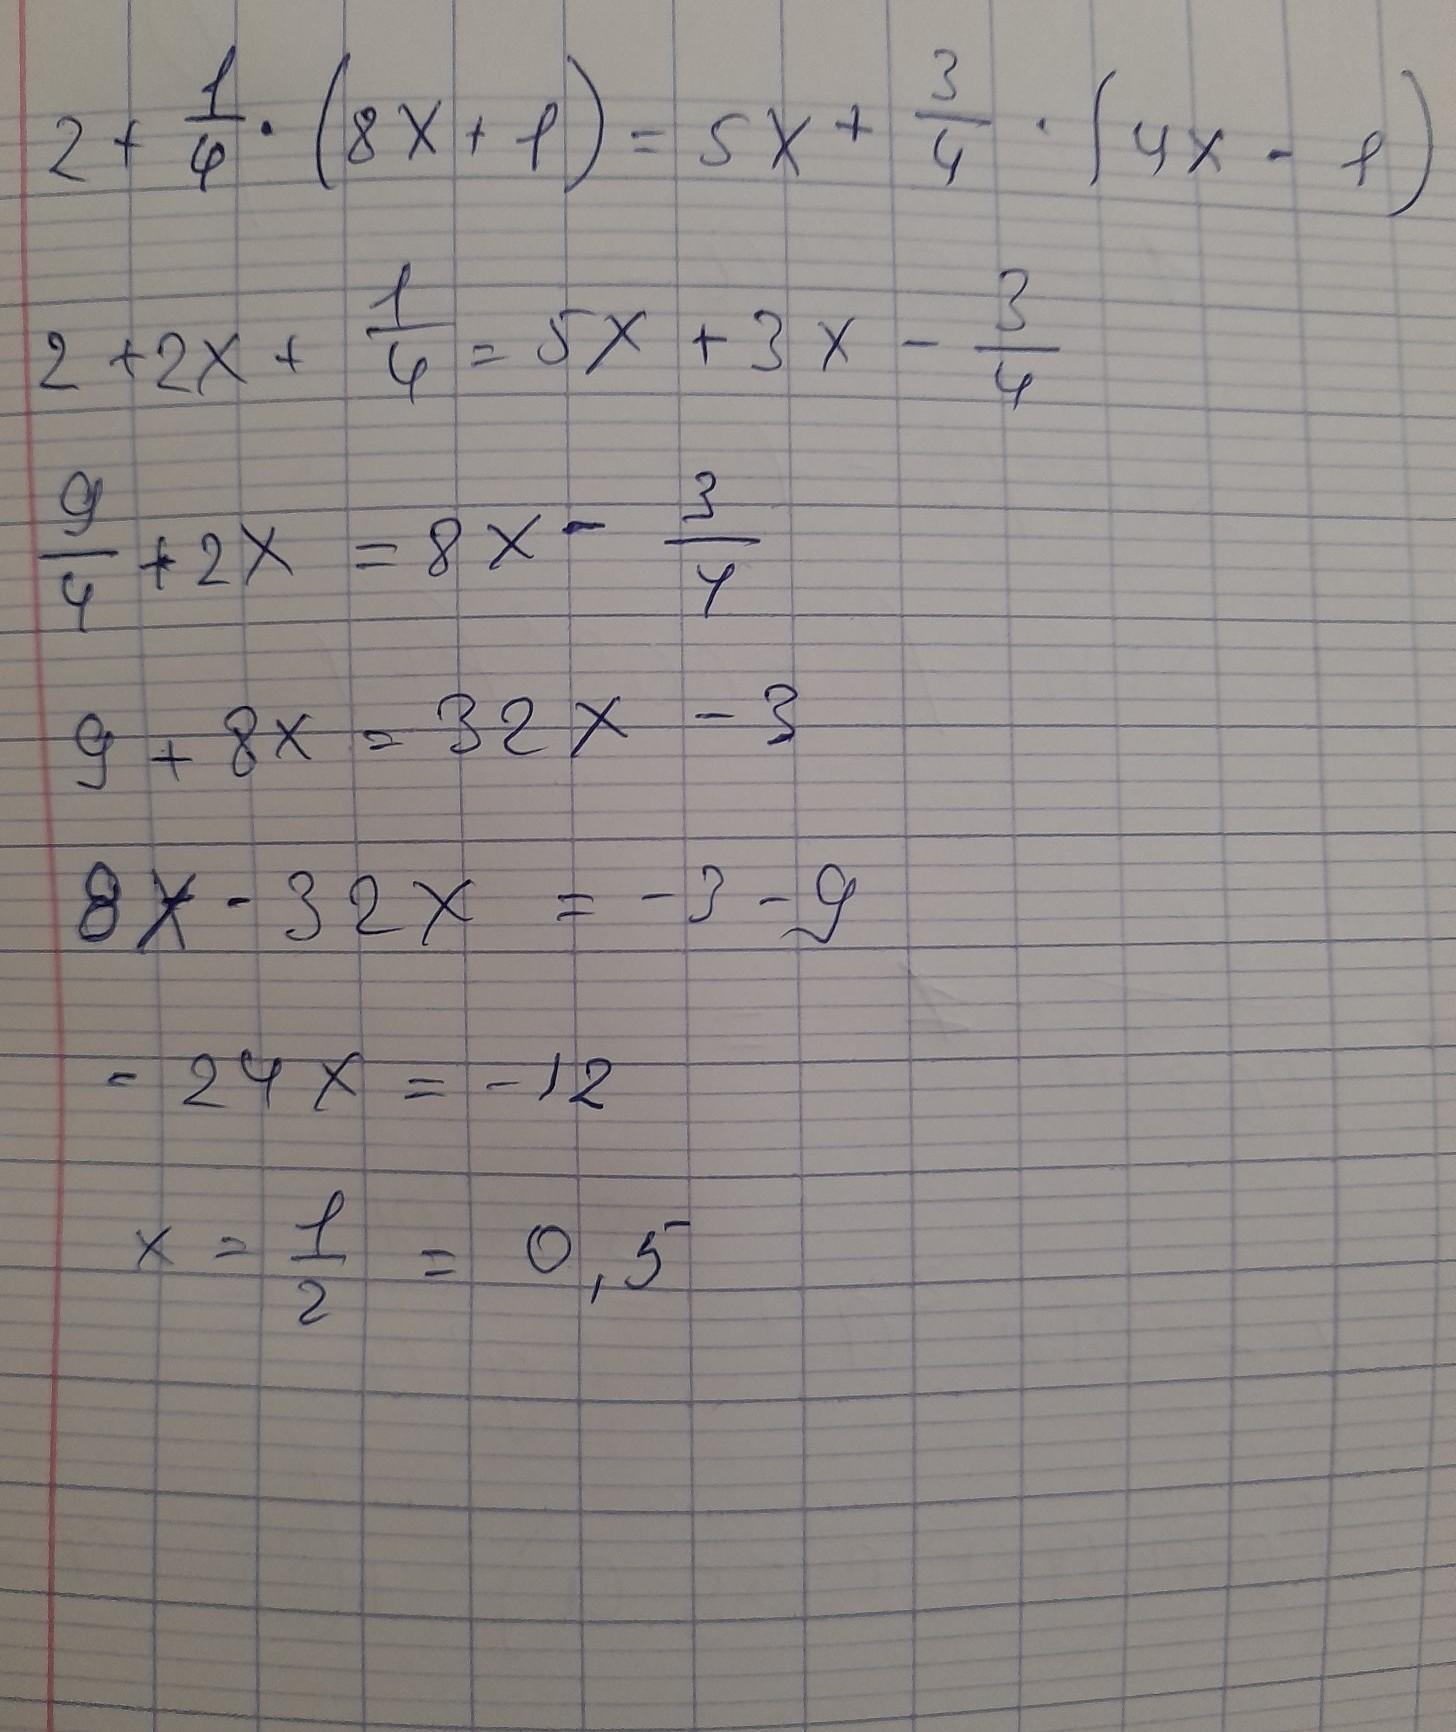 2 + 1/4 · (8x + 1) = 5x + 3/4 · (4x - 1)
2 + 2x + 1/4 = 5x + 3x - 3/4
9/4 + 2x = 8x - 3/4
9 + 8x = 32x - 3
8x - 32x = -3 - 9
- 24x = -12
x = 1/2 = 0,5